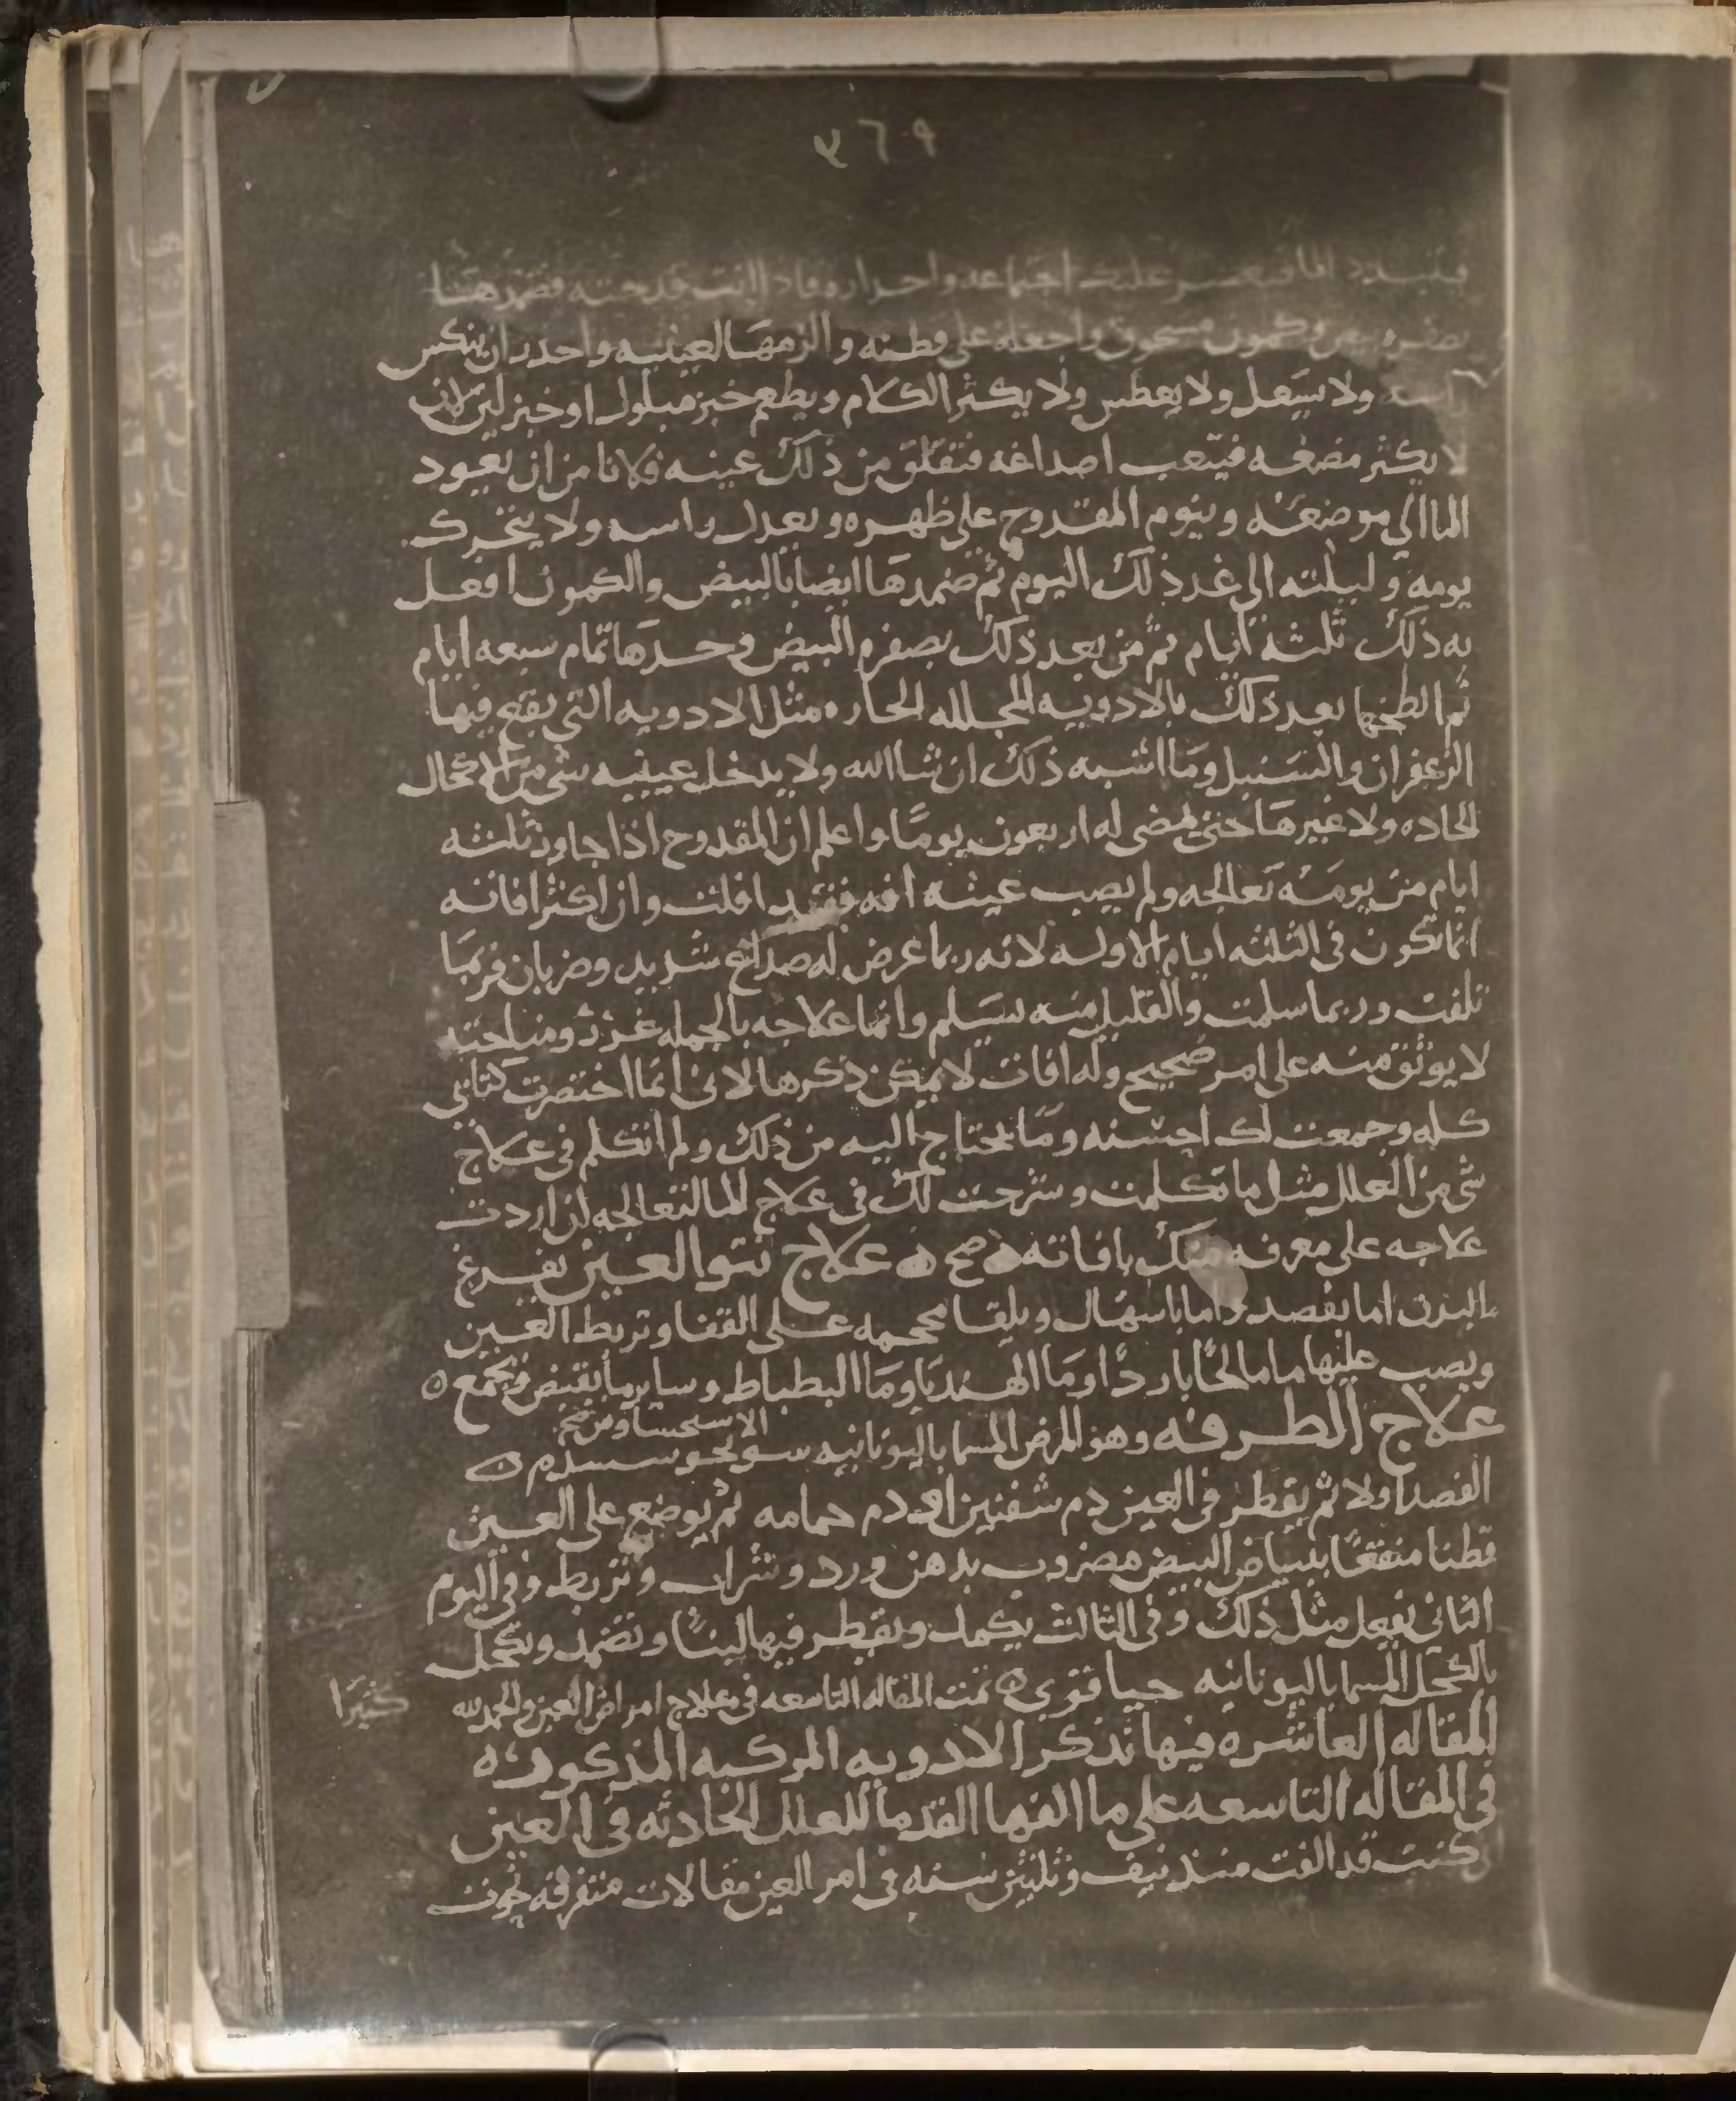 ٣٦٩
فيتبدد اجتماعه فاذا انت قدحته فضمدهتا
وكمون مسحوق واجعله على قطنه والزمها العينيه واحدر ان ينكس
راسه ولا يسعل ولا يعطس ولا يكثر الكلام ويطعم خبز مبلول او خبز لين لان
لا يكثر مضغه فيتعب اصداغه فتقلق من ذلك عينه فلا نامن ان يعود
الما الي موضعه وينوم المقدوح على ظهره ويعدل راسه ولا يتحرك
يومه وليلته الى غد ذلك اليوم ثم ضمدها ايضا بالبيض والكمون افعل
به ذلك ثلثه ايام ثم من بعد ذلك بصفره البيض وحدها تمام سبعه ايام
ثم الطخها بعد ذلك بالادويه المحلله الحاره مثل الادويه التي يقع فيها
الزعفران والسنبل وما اشبه ذلك ان شا الله ولا يدخل عينيه شي من الاكحال
الحاده ولا غيرها حتى يمضى له اربعون يوما واعلم ان المقدوح اذا جاوز ثلثه
ايام من يومه تعالجه ولم يصب عينه افه فقد افلت وان اكثر افاته
انما تكون فى الثلثه ايام الاوله لانه ربما عرض له صداع شديد وضربان فربما
تلفت وربما سلمت والقليل منه يسلم وانما علاجه بالجمله غرر ومناحته
لا يوثق منه على امر صحيح وله افات لا يمكن ذكرها لانى انما اختصرت كتابي
كله وجمعت لك احسنه وما يحتاج اليه من ذلك ولم اتكلم فى علاج
شي من العلل مثل ما تكلمت وشرحت لك فى علاج الما لتعالجه ان اردت
علاجه على معرفه منك بافاته صح علاج نتو العين تفرغ
البدن اما بفصد واما باسهال ويلقا محجمه على القفا وتربط العين
ويصب عليها ما مالحا باردا وما الهندبا وما البطباط وساير ما يقبض ويجمع
علاج الطرفه وهو المرض المسما باليونانيه
الفصد اولا ثم يقطر فى العين دم شفنين او دم حمامه ثم يوضع على العين
قطنا منقعا ببياض البيض مضروب بدهن ورد وشراب وتربط وفى اليوم
الثانى يفعل مثل ذلك وفى الثالث يكمد ويقطر فيها لبنا وتضمد وتكحل
بالكحل المسما باليونانيه حيا قتوي تمت المقاله التاسعه فى علاج امراض العين والحمد لله كثيرا
المقاله العاشره فيها نذكر الادويه المركبه المذكوره
فى المقاله التاسعه على ما الفها القدما للعلل الحادثه فى العين
انى كنت قد الفت منذ نيف وثلثين سنه فى امر العين مقالات متفرقه نحوت